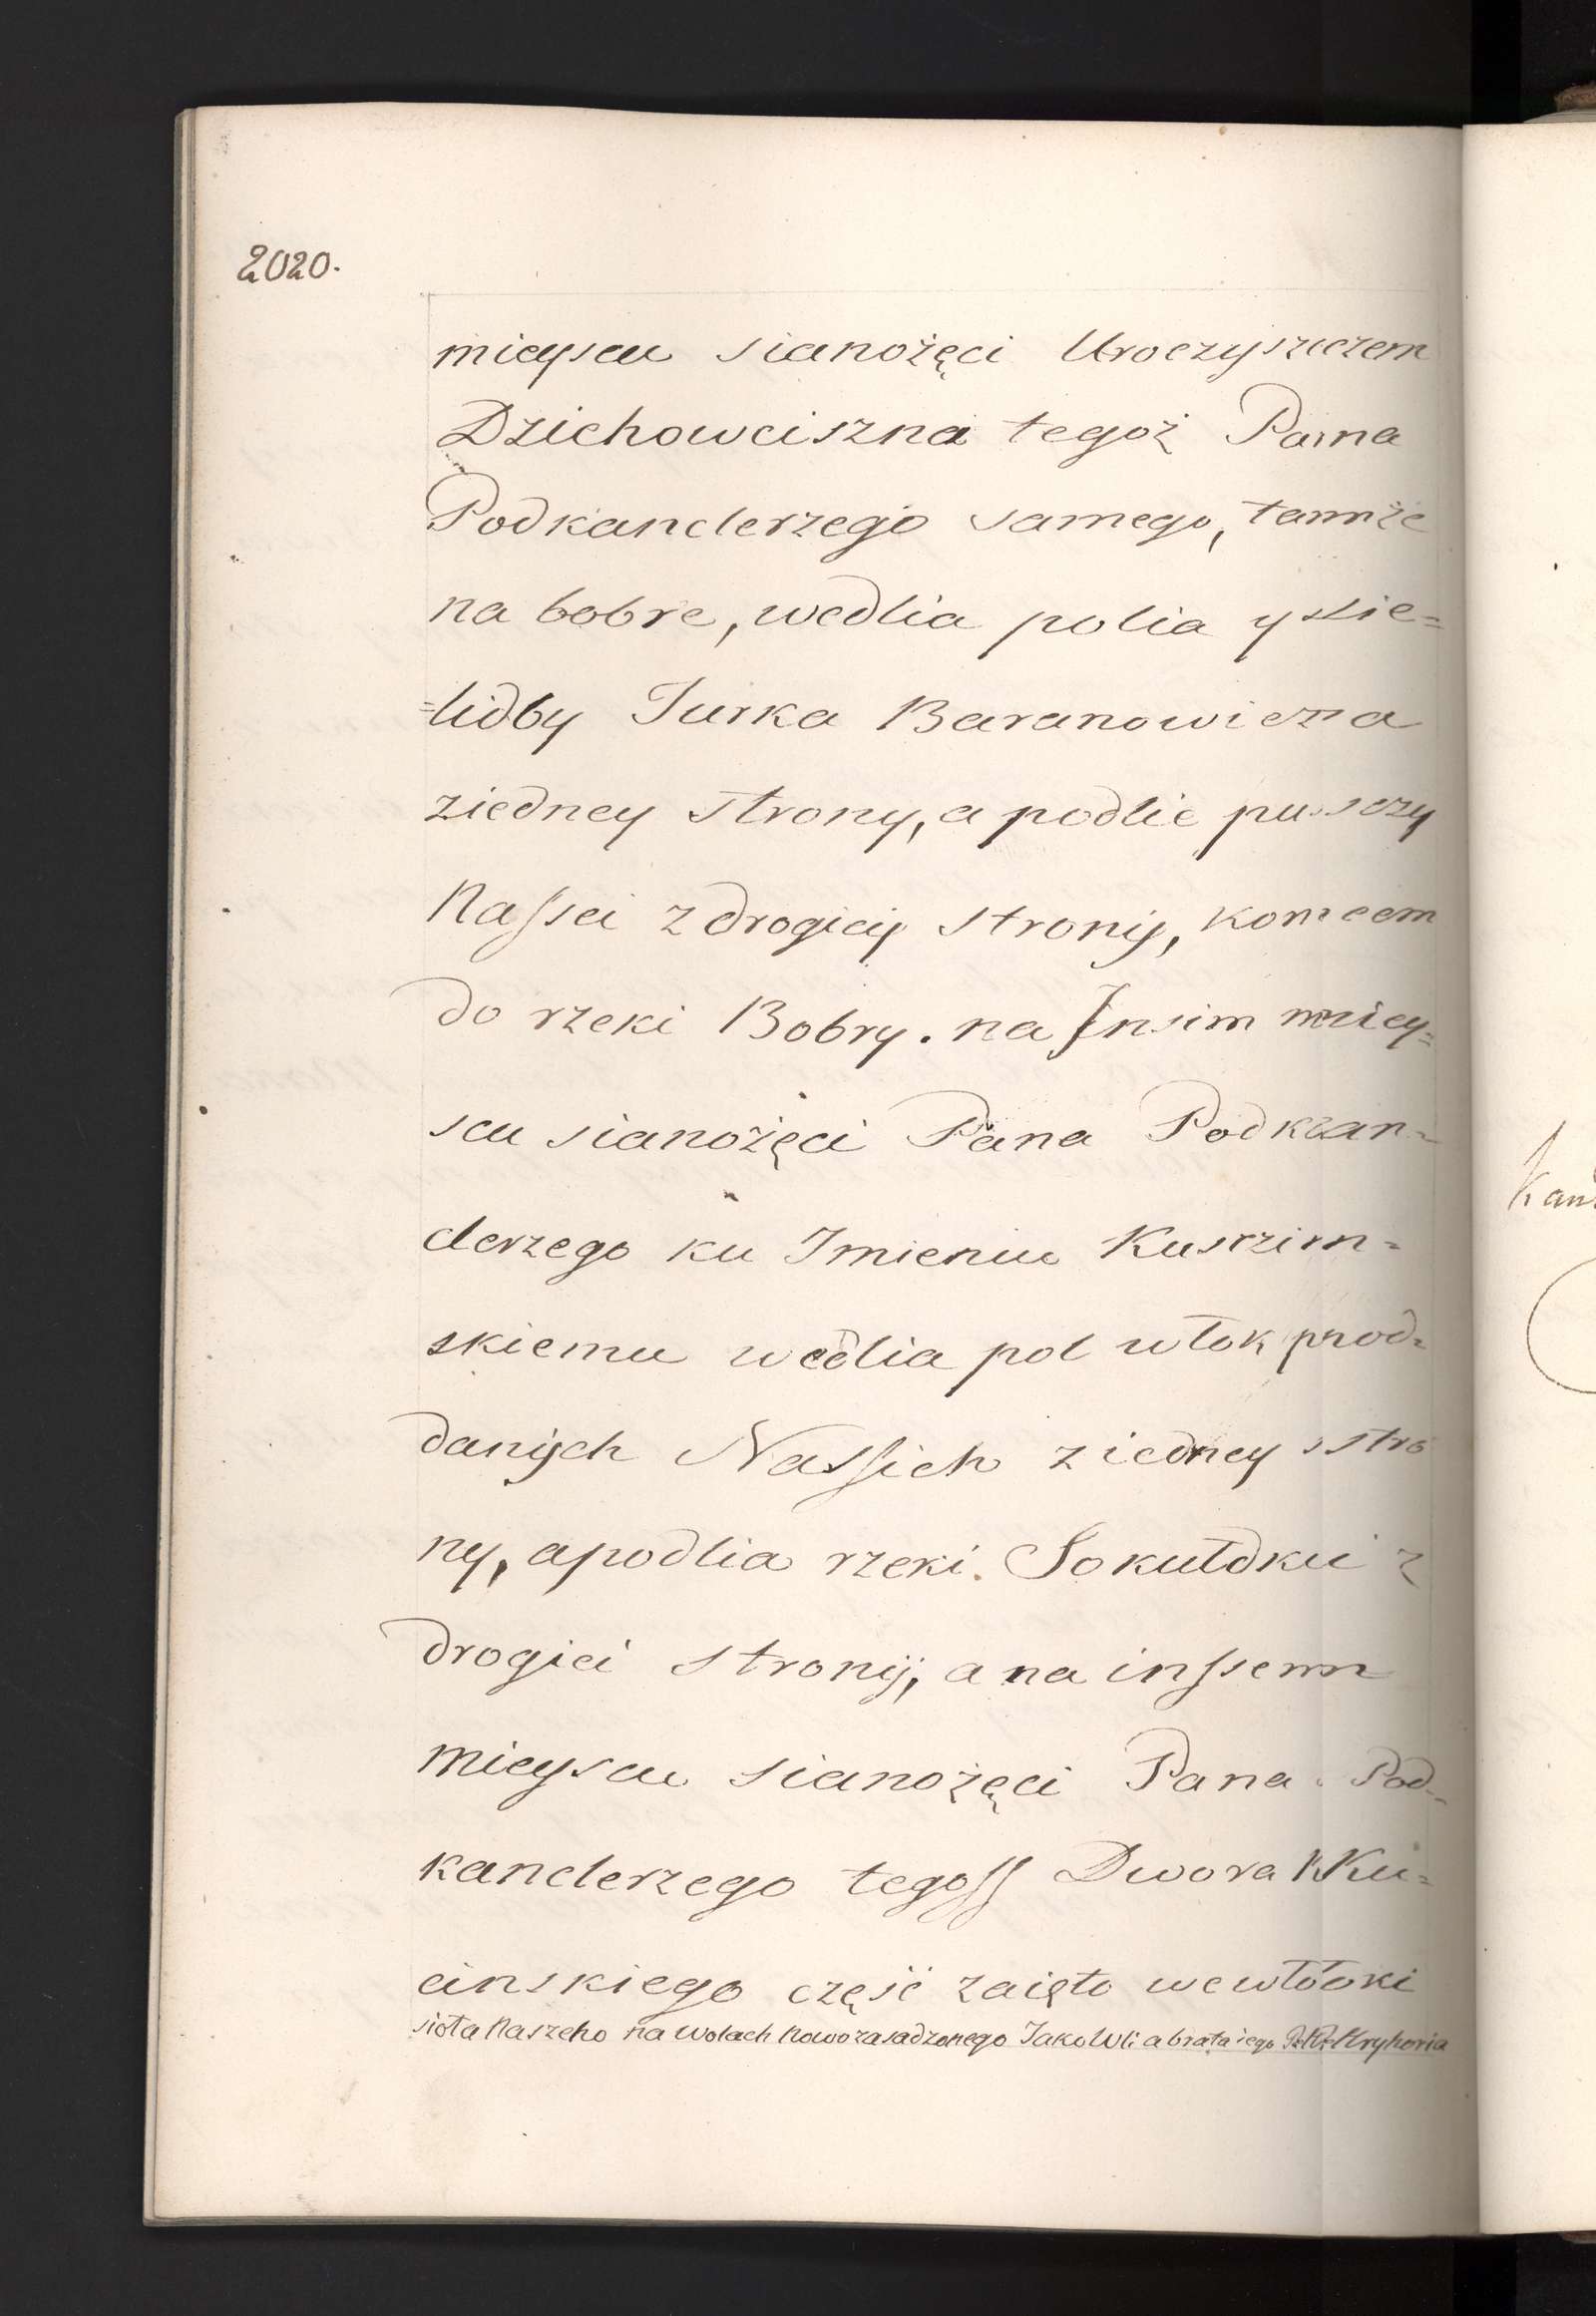 2020.
mieyscu sianożęci Uroczyszczem
Dzichowciszna tegoż Pana
Podkanclerzego samego, tamże
na bobre, wedlia polia y sie=
=lidby Jurka Baranowicza
ziedney strony, a podlie pusczy
Nassei z drogiey strony, koncem
do rzeki Bobry. na Insim miey=
scu sianożęci Pana Podkan=
clerzego ku Imieniu Kuszim=
skiemu wedlia pol włok pod=
danych Nassich ziedney stro
ny, apodlia rzeki Sokułdki z
drogiei strony, a na inssem
mieyscu sianożęci Pana Pod=
kanclerzego tegoss Dwora Ku=
cinskiego część zaięto we włóki
sioła Naszeho na Wolach Nowozasadzonego Jako Wli a brata iego Hryhoria
Kan